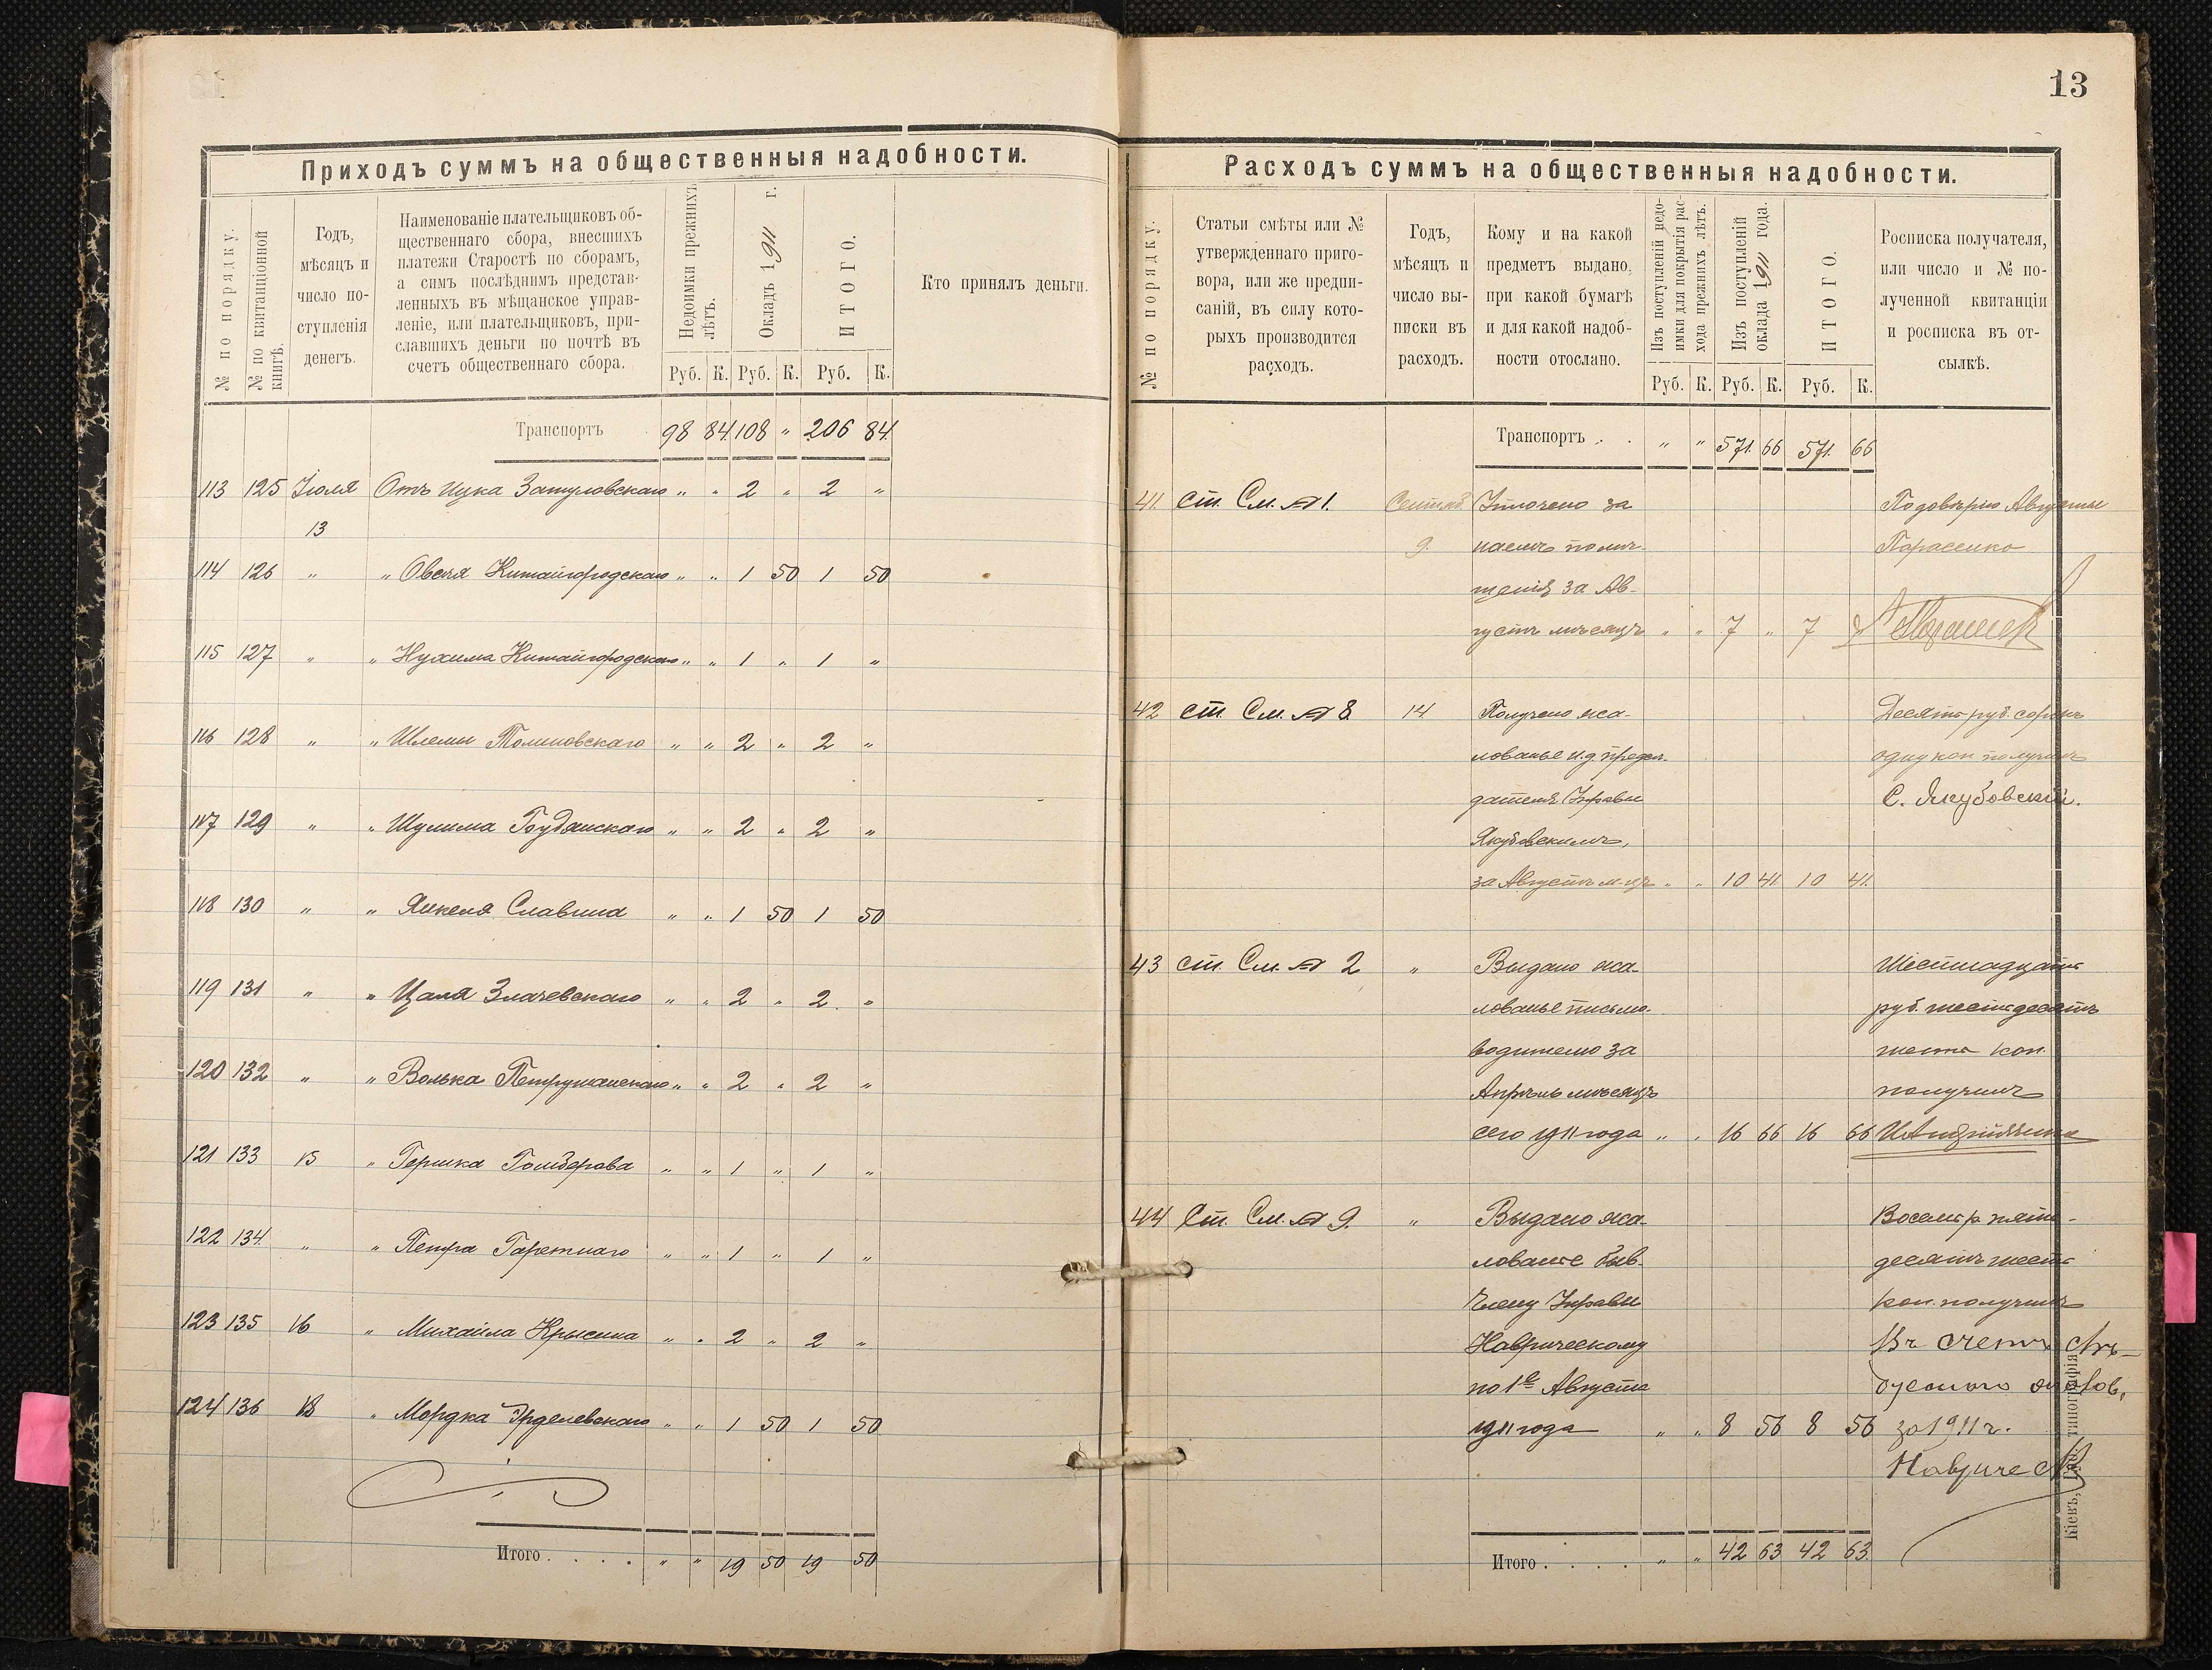 13
Приходъ суммъ на общественныя надобности.
№ по порядку.
№ по квитанціонной книгѣ.
Годъ,
мѣсяцъ и
число по-
ступленія
денегъ.
Наименованіе плательщиковъ об-
щественнаго сбора, внесшихъ
платежи Старостѣ по сборамъ,
а симъ послѣднимъ представ-
ленныхъ въ мѣщанское управ-
леніе, или плательщиковъ, при-
славшихъ деньги по почтѣ въ
счетъ общественнаго сбора.
Недоимки прежнихъ лѣтъ.
Окладъ 1911 г.
ИТОГО.
Кто принялъ деньги.
Руб. К. Руб. К. Руб. К.
Транспортъ 98 84 108 " 206 84
113 125 Іюля Отъ Ицка Затуловскаго " " 2 " 2 "
13
114 126 " " Овсея Китайгородскаго " " 1 50 1 50
115 127 " " Нухима Китайгородскаго " " 1 " 1 "
116 128 " " Шлемы " " 2 " 2 "
117 129 " " Шулима " " 2 " 2 "
118 130 " " Янкеля Славина " " 1 50 1 50
119 131 " " Цаля Злачевскаго " " 2 " 2 "
120 132 " " Волька Петрушанскаго " " 2 " 2 "
121 133 15 " Гершка " " 1 " 1 "
122 134 " " Петра " " 1 " 1 "
123 135 16 " Михайла Крысина " " 2 " 2 "
124 136 18 " Мордка Эрделевскаго " " 1 50 1 50
Итого . . . . " " 19 50 19 50
Расходъ суммъ на общественныя надобности.
№ по порядку.
Статьи смѣты или №
утвержденнаго приго-
вора, или же предпи-
саній, въ силу кото-
рыхъ производится
расходъ.
Годъ,
мѣсяцъ и
число вы-
писки въ
расходъ.
Кому и на какой
предметъ выдано,
при какой бумагѣ
и для какой надоб-
ности отослано.
Изъ поступленій недо-
имки для покрытія рас-
хода прежнихъ лѣтъ.
Изъ поступленій
оклада 1911 года.
ИТОГО.
Росписка получателя,
или число и № по-
лученной квитанціи
и росписка въ от-
сылкѣ.
Руб. К. Руб. К. Руб. К.
Транспортъ . . " " 571. 66 571. 66
41. ст. См. № 1. Сентяб. Уплочено за По довѣрію Августы
9. наемъ помѣ- Тарасенко
щенія за Ав-
густъ мѣсяцъ " " 7 " 7 "
42 ст. См. № 8. 14 Получено жа- Десять руб. сорокъ
лованье и.д. предсѣ- одну коп. получилъ
дателя Управы С. Якубовскій.
Якубовскимъ,
за Августъ м-цъ " " 10 41 10 41.
43 ст. См. № 2 " Выдано жа- Шестнадцать
лованье письмо- руб. шестьдесятъ
водителю за шесть коп.
Апрѣль мѣсяцъ получилъ
сего 1911 года " " 16 66 16 66
44 Ст. См. № 9. " Выдано жа- Восемь р. пять-
лованье быв. десятъ шесть
Члену Управы коп. получилъ
Наврическому Въ счетъ слѣ-
по 1е Августа
1911 года " " 8 56 8 56 за 1911 г.
Итого . . . . " " 42 63 42 63